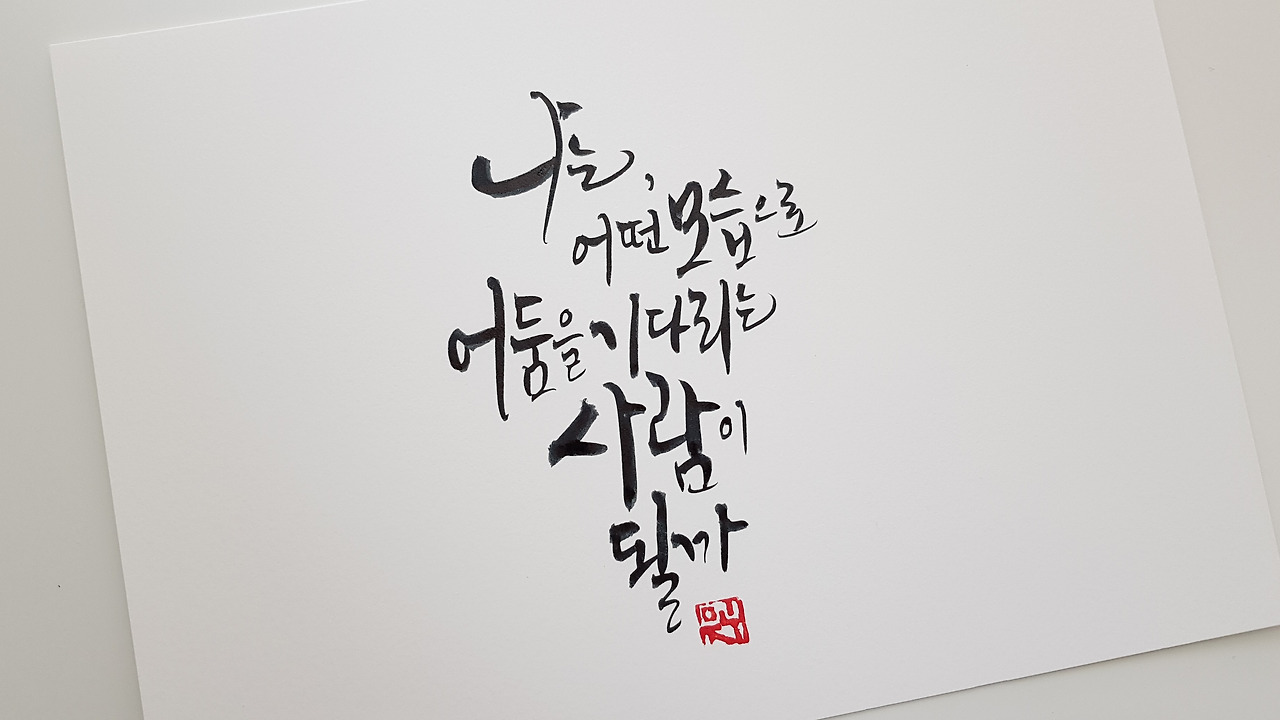 나는,
어떤 모습으로
어둠을 기다리는
사람이
될까